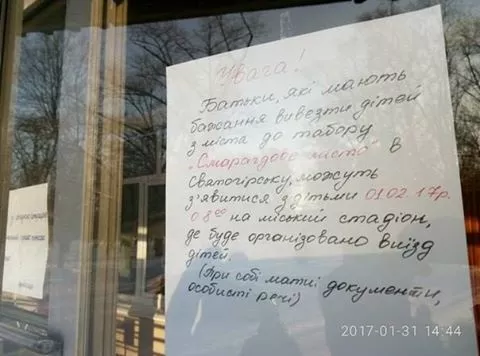 Увага!
Батьки, які мають
бажання вивезти дітей
з міста до табору
„Смарагдове місто" в
Святогірську, можуть
з'явитися з дітьми 01.02.17р.
08⁰⁰ на міський стадіон,
де буде організовано виїзд
дітей.
(При собі мати документи,
особисті речі)
2017-01-31 14:44